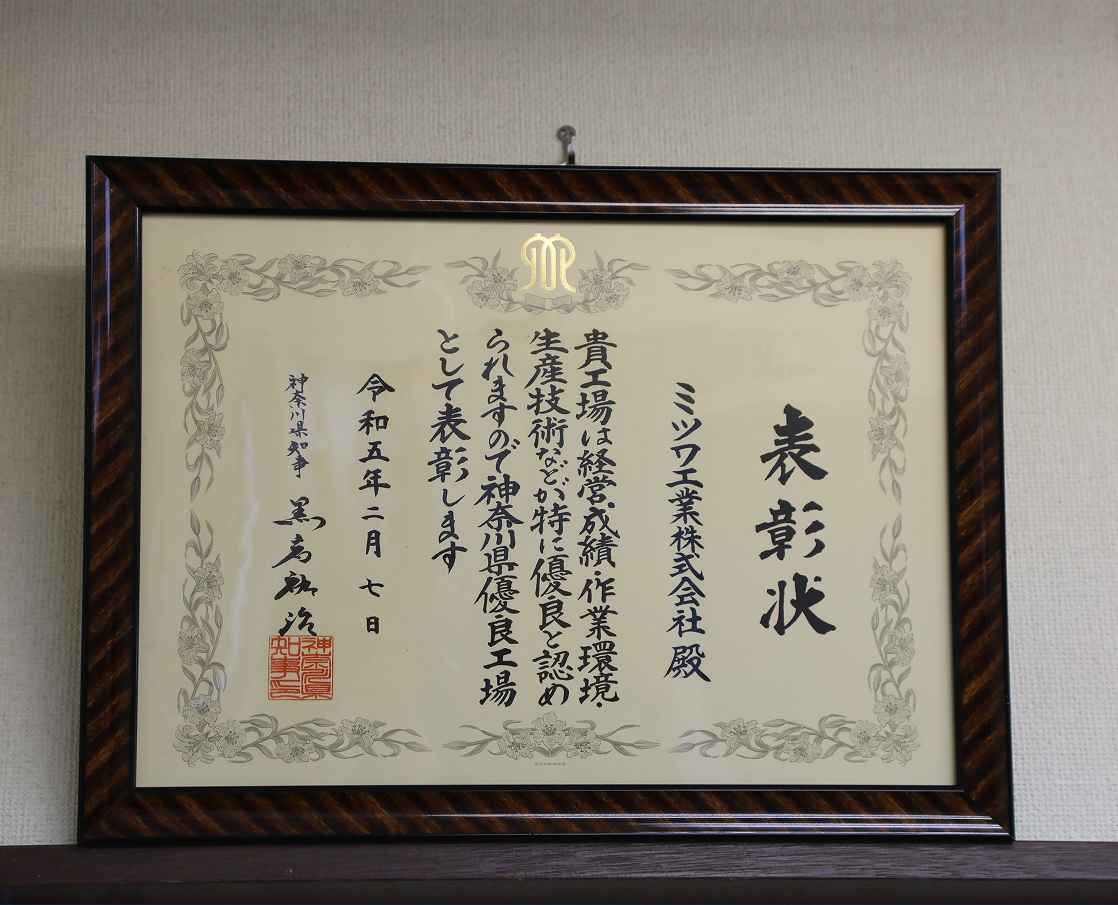 表彰状
ミツワ工業株式会社 殿
貴工場は経営・成績・作業環境・
生産技術などが特に優良と認め
られますので神奈川県優良工場
として表彰します
令和五年二月七日
神奈川県知事 黒岩祐治
神奈川県
知事之印